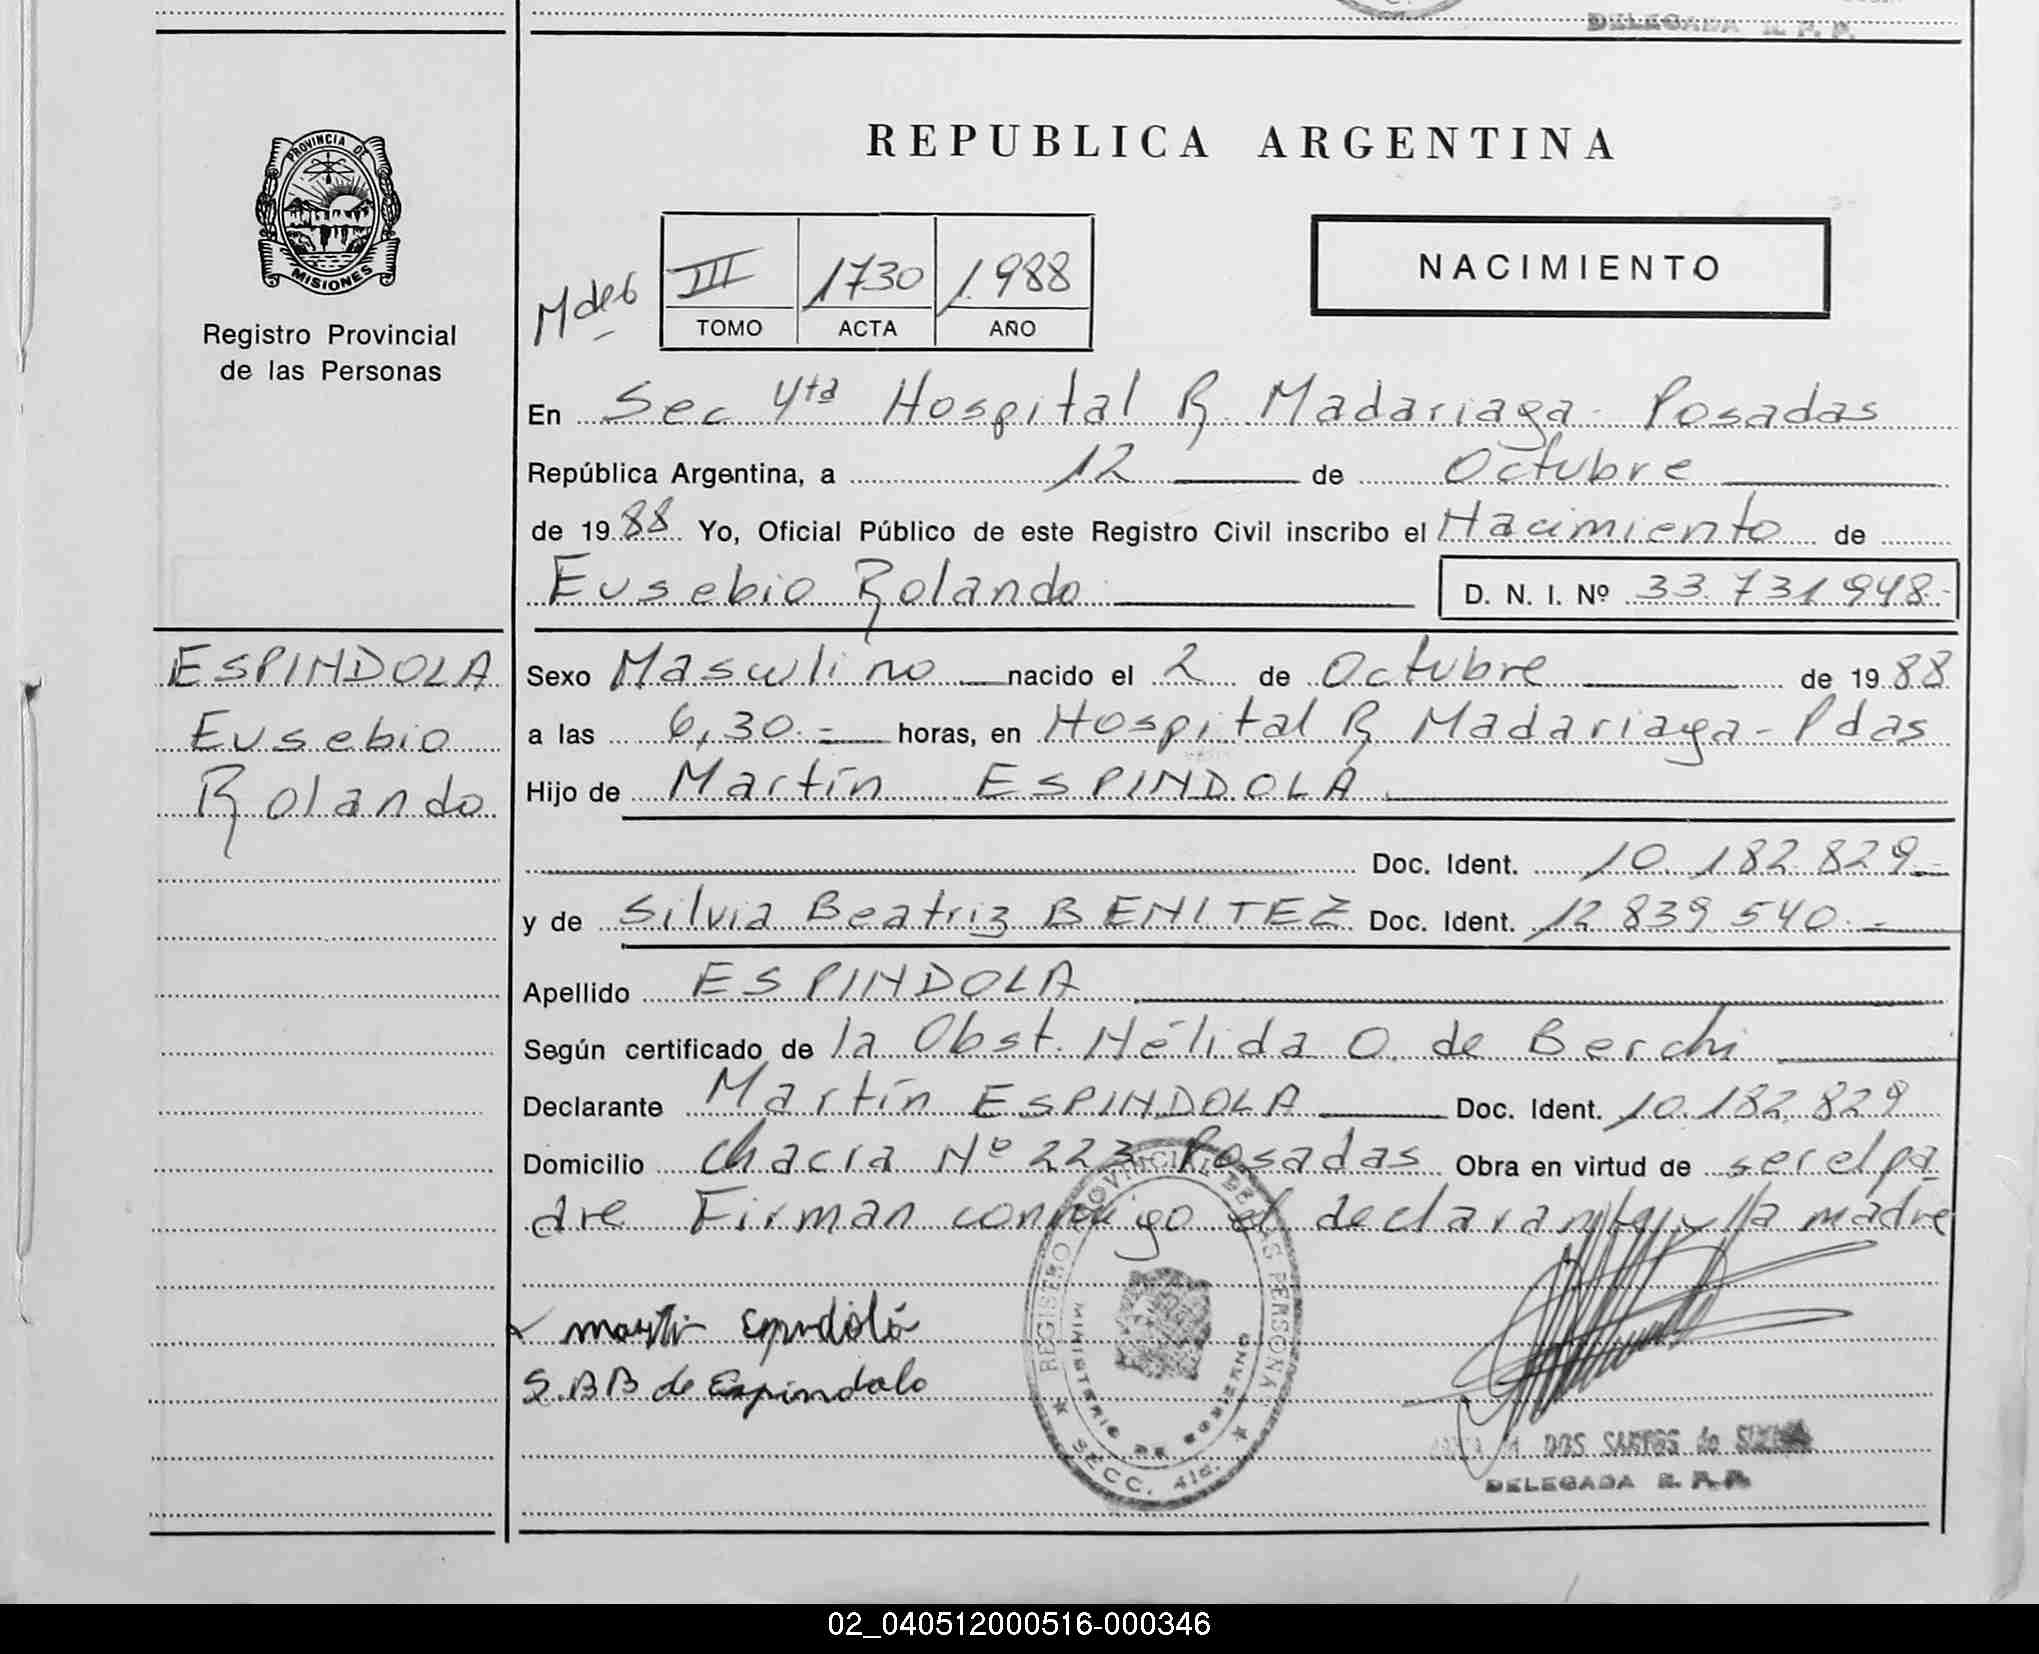 DELEGADA R. P. P.
PROVINCIA DE
MISIONES
Registro Provincial
de las Personas
REPUBLICA ARGENTINA
III 1730 1.988
TOMO ACTA AÑO
NACIMIENTO
En Sec 4ta Hospital R. Madariaga - Posadas
República Argentina, a 12 de Octubre
de 1988 Yo, Oficial Público de este Registro Civil inscribo el Nacimiento de
Eusebio Rolando D. N. I. Nº 33.731.948.-
ESPINDOLA
Eusebio
Rolando
Sexo Masculino nacido el 2 de Octubre de 1988
a las 6,30.- horas, en Hospital R. Madariaga - Pdas
Hijo de Martín ESPINDOLA
Doc. Ident. 10.182.829.-
y de Silvia Beatriz BENITEZ Doc. Ident. 12.839.540.-
Apellido ESPINDOLA
Según certificado de la Obst. Nélida O. de Berchi
Declarante Martín ESPINDOLA Doc. Ident. 10.182.829
Domicilio Chacra Nº 223 Posadas Obra en virtud de ser el pa
dre Firman conmigo el declarante y la madre
S.B.B de Espindola
REGISTRO PROVINCIAL DE LAS PERSONAS
MINISTERIO DE GOBIERNO
SECC. 4ta.
DOS SANTOS de
DELEGADA R. P. P.
02_040512000516-000346